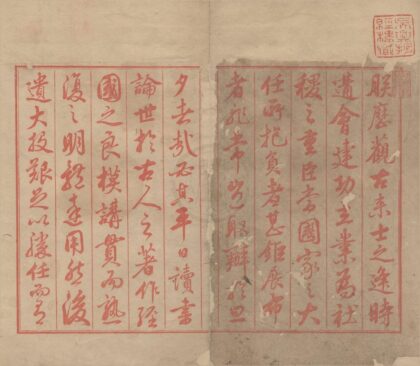 朕歷觀古來士之逢時
遭會建功立業為社
稷之重臣當國家之大
任所抱負者甚鉅展布
者非常豈取辦於旦
夕者哉必其平日讀書
論世於古人之著作經
國之良模講貫而熟
復之明體達用然後
遺大投艱足以勝任而有